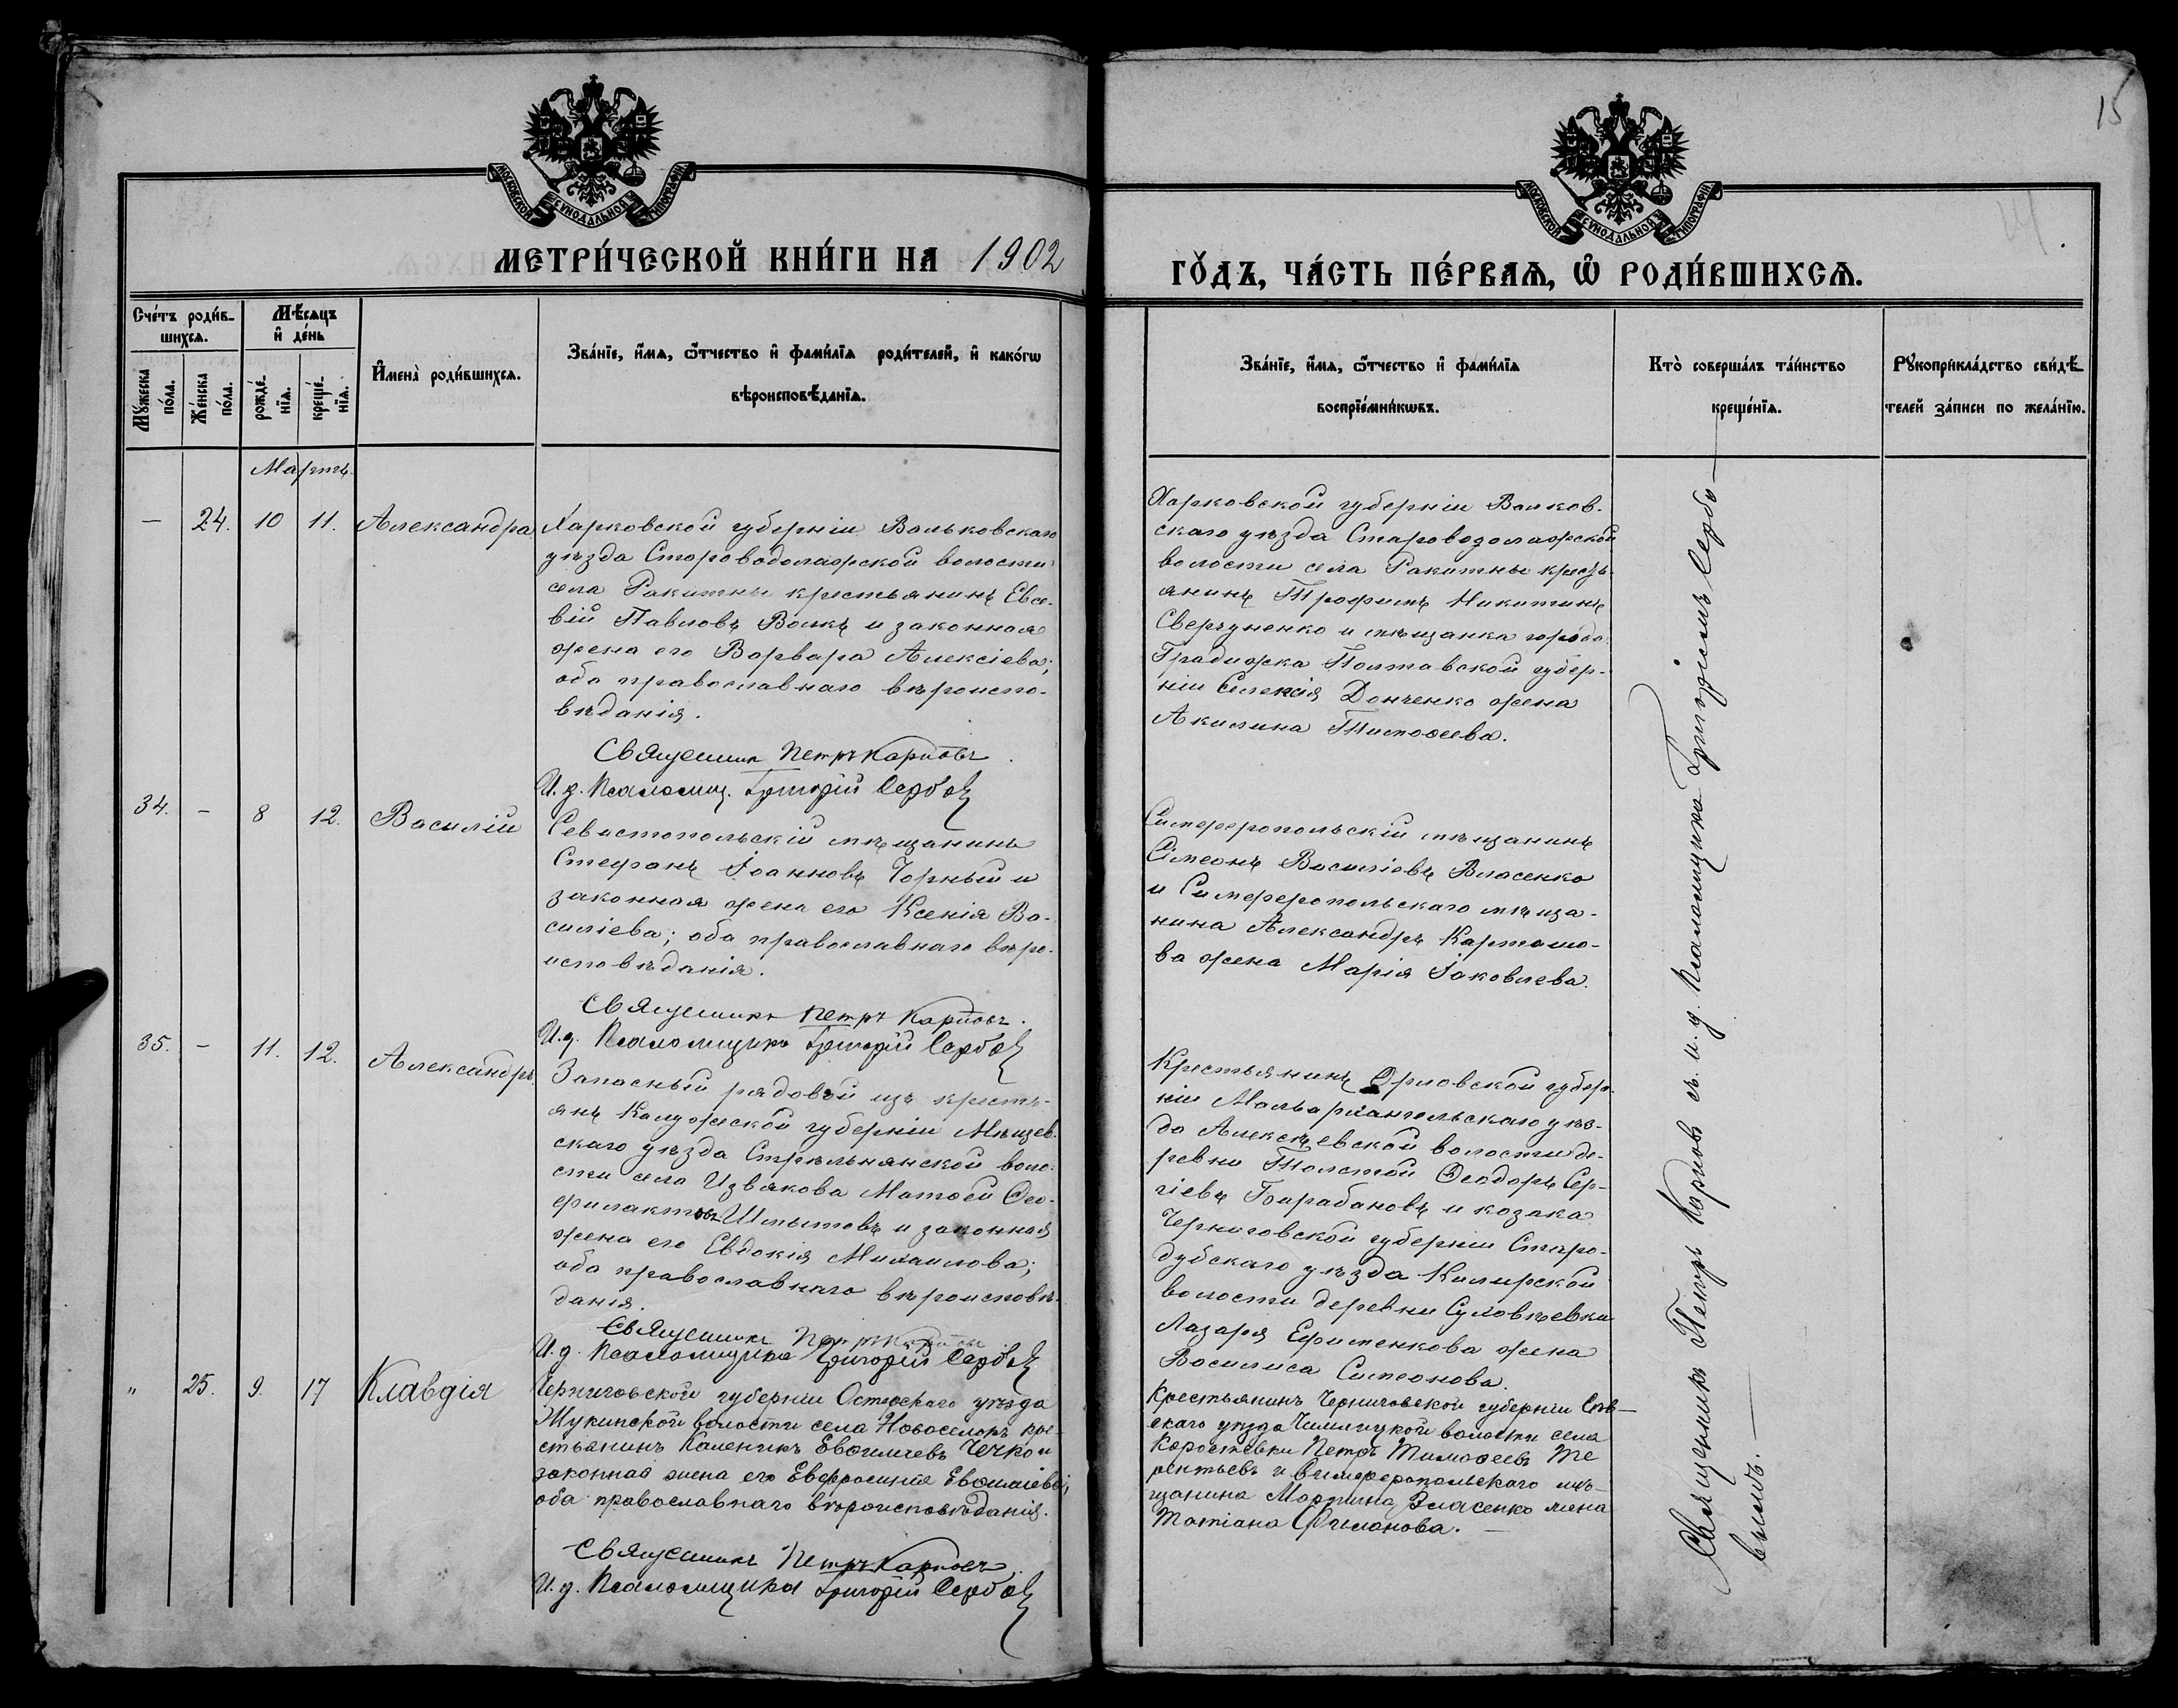 15
МОСКОВСКОЙ СѴНОДАЛЬНОЙ ТИПОГРАФІИ
МОСКОВСКОЙ СѴНОДАЛЬНОЙ ТИПОГРАФІИ
МЕТРИ́ЧЕСКОЙ КНИ́ГИ НА 1902
ГО́ДЪ, ЧА́СТЬ ПЕ́РВАѦ, Ѡ҆ РОДИ́ВШИХСѦ.
Сче́тъ роди́в-
шихсѧ.
Мѣ́сѧцъ
и҆ де́нь
Мꙋ́жеска
по́ла.
Же́нска
по́ла.
рожде́-
нїѧ.
креще́-
нїѧ.
И҆мена̀ роди́вшихсѧ.
Зва́нїе, и҆́мѧ, ѻ҆́тчество и҆ фами́лїѧ роди́телей, и҆ како́гѡ
вѣроисповѣ́данїѧ.
Зва́нїе, и҆́мѧ, ѻ҆́тчество и҆ фами́лїѧ
воспрїе́мникѡвъ.
Кто̀ соверша́лъ та́инство
креще́нїѧ.
Рꙋкоприкла́дство свидѣ́-
телей за́писи по жела́нїю.
Мартъ.
— 24. 10 11. Александра
Харковской губерніи Вальковскаго
уѣзда Староводолажской волости
села Ракитны крестьянинъ Евсе-
вій Павловъ Волкъ и законная
жена его Варвара Алексіева;
оба православнаго вѣроиспо-
вѣданія.
Священник Петръ Карповъ.
И. д. Псаломщ. Григорій Сербовъ
Харковской губерніи Валков-
скаго уѣзда Староводолажской
волости села Ракитны кресть-
янинъ Трофимъ Никитинъ
Сверчуненко и мѣщанка города
Градижска Полтавской губер-
ніи Алексія Донченко жена
Акилина Тимоѳеева.
34. — 8 12. Василій
Севастопольскій мѣщанинъ
Стефанъ Іоанновъ Чорный и
законная жена его Ксенія Ва-
силіева; оба православнаго вѣро-
исповѣданія.
Священникъ Петръ Карповъ.
И. д. Псаломщика Григорій Сербовъ
Симферопольскій мѣщанинъ
Сімеонъ Василіевъ Власенко
и Симферопольскаго мѣща-
нина Александръ Карташо-
ва жена Марія Іаковлева.
35. — 11. 12. Александръ.
Запасный рядовой изъ кресть-
янъ Калужской губерніи Мѣщев-
скаго уѣзда Стрѣльнянской воло-
сти села Извякова Матѳей Ѳео-
филактовъ Шмытовъ и законная
жена его Евдокія Михаилова;
оба православнаго вѣроисповѣ-
данія.
Священникъ Петръ Карповъ
И. д. Псаломщика Григорій Сербовъ
Крестьянинъ Орловской губер-
ніи Малоархангельскаго уѣз-
да Алексѣевской волости де-
ревни Толстой Ѳеодоръ Сер-
гіевъ Барабановъ и козака
Черниговской губерніи Старо-
дубскаго уѣзда
волости деревни
Лазаря Ефименкова жена
Василиса Симеонова.
" 25. 9. 17 Клавдія
Черниговской губерніи Остерскаго уѣзда
Жукинской волости села Новоселокъ кре-
стьянинъ Каленикъ Евѳиміевъ Чечко и
законная жена его Евфросинія Евѳиміева;
оба православнаго вѣроисповѣданія.
Священникъ Петръ Карповъ
И. д. Псаломщика Григорій Сербовъ
Крестьянинъ Черниговской губерніи Сѣв-
скаго уѣзда волости села
Коростовки Петръ Тимоѳеевъ Те
рентьевъ и Симферопольскаго мѣ-
щанина Мартина Власенко жена
Татіана Филонова. —
Священникъ Петръ Карповъ съ и. д. псаломщика Григоріемъ Сербо-
вымъ. —